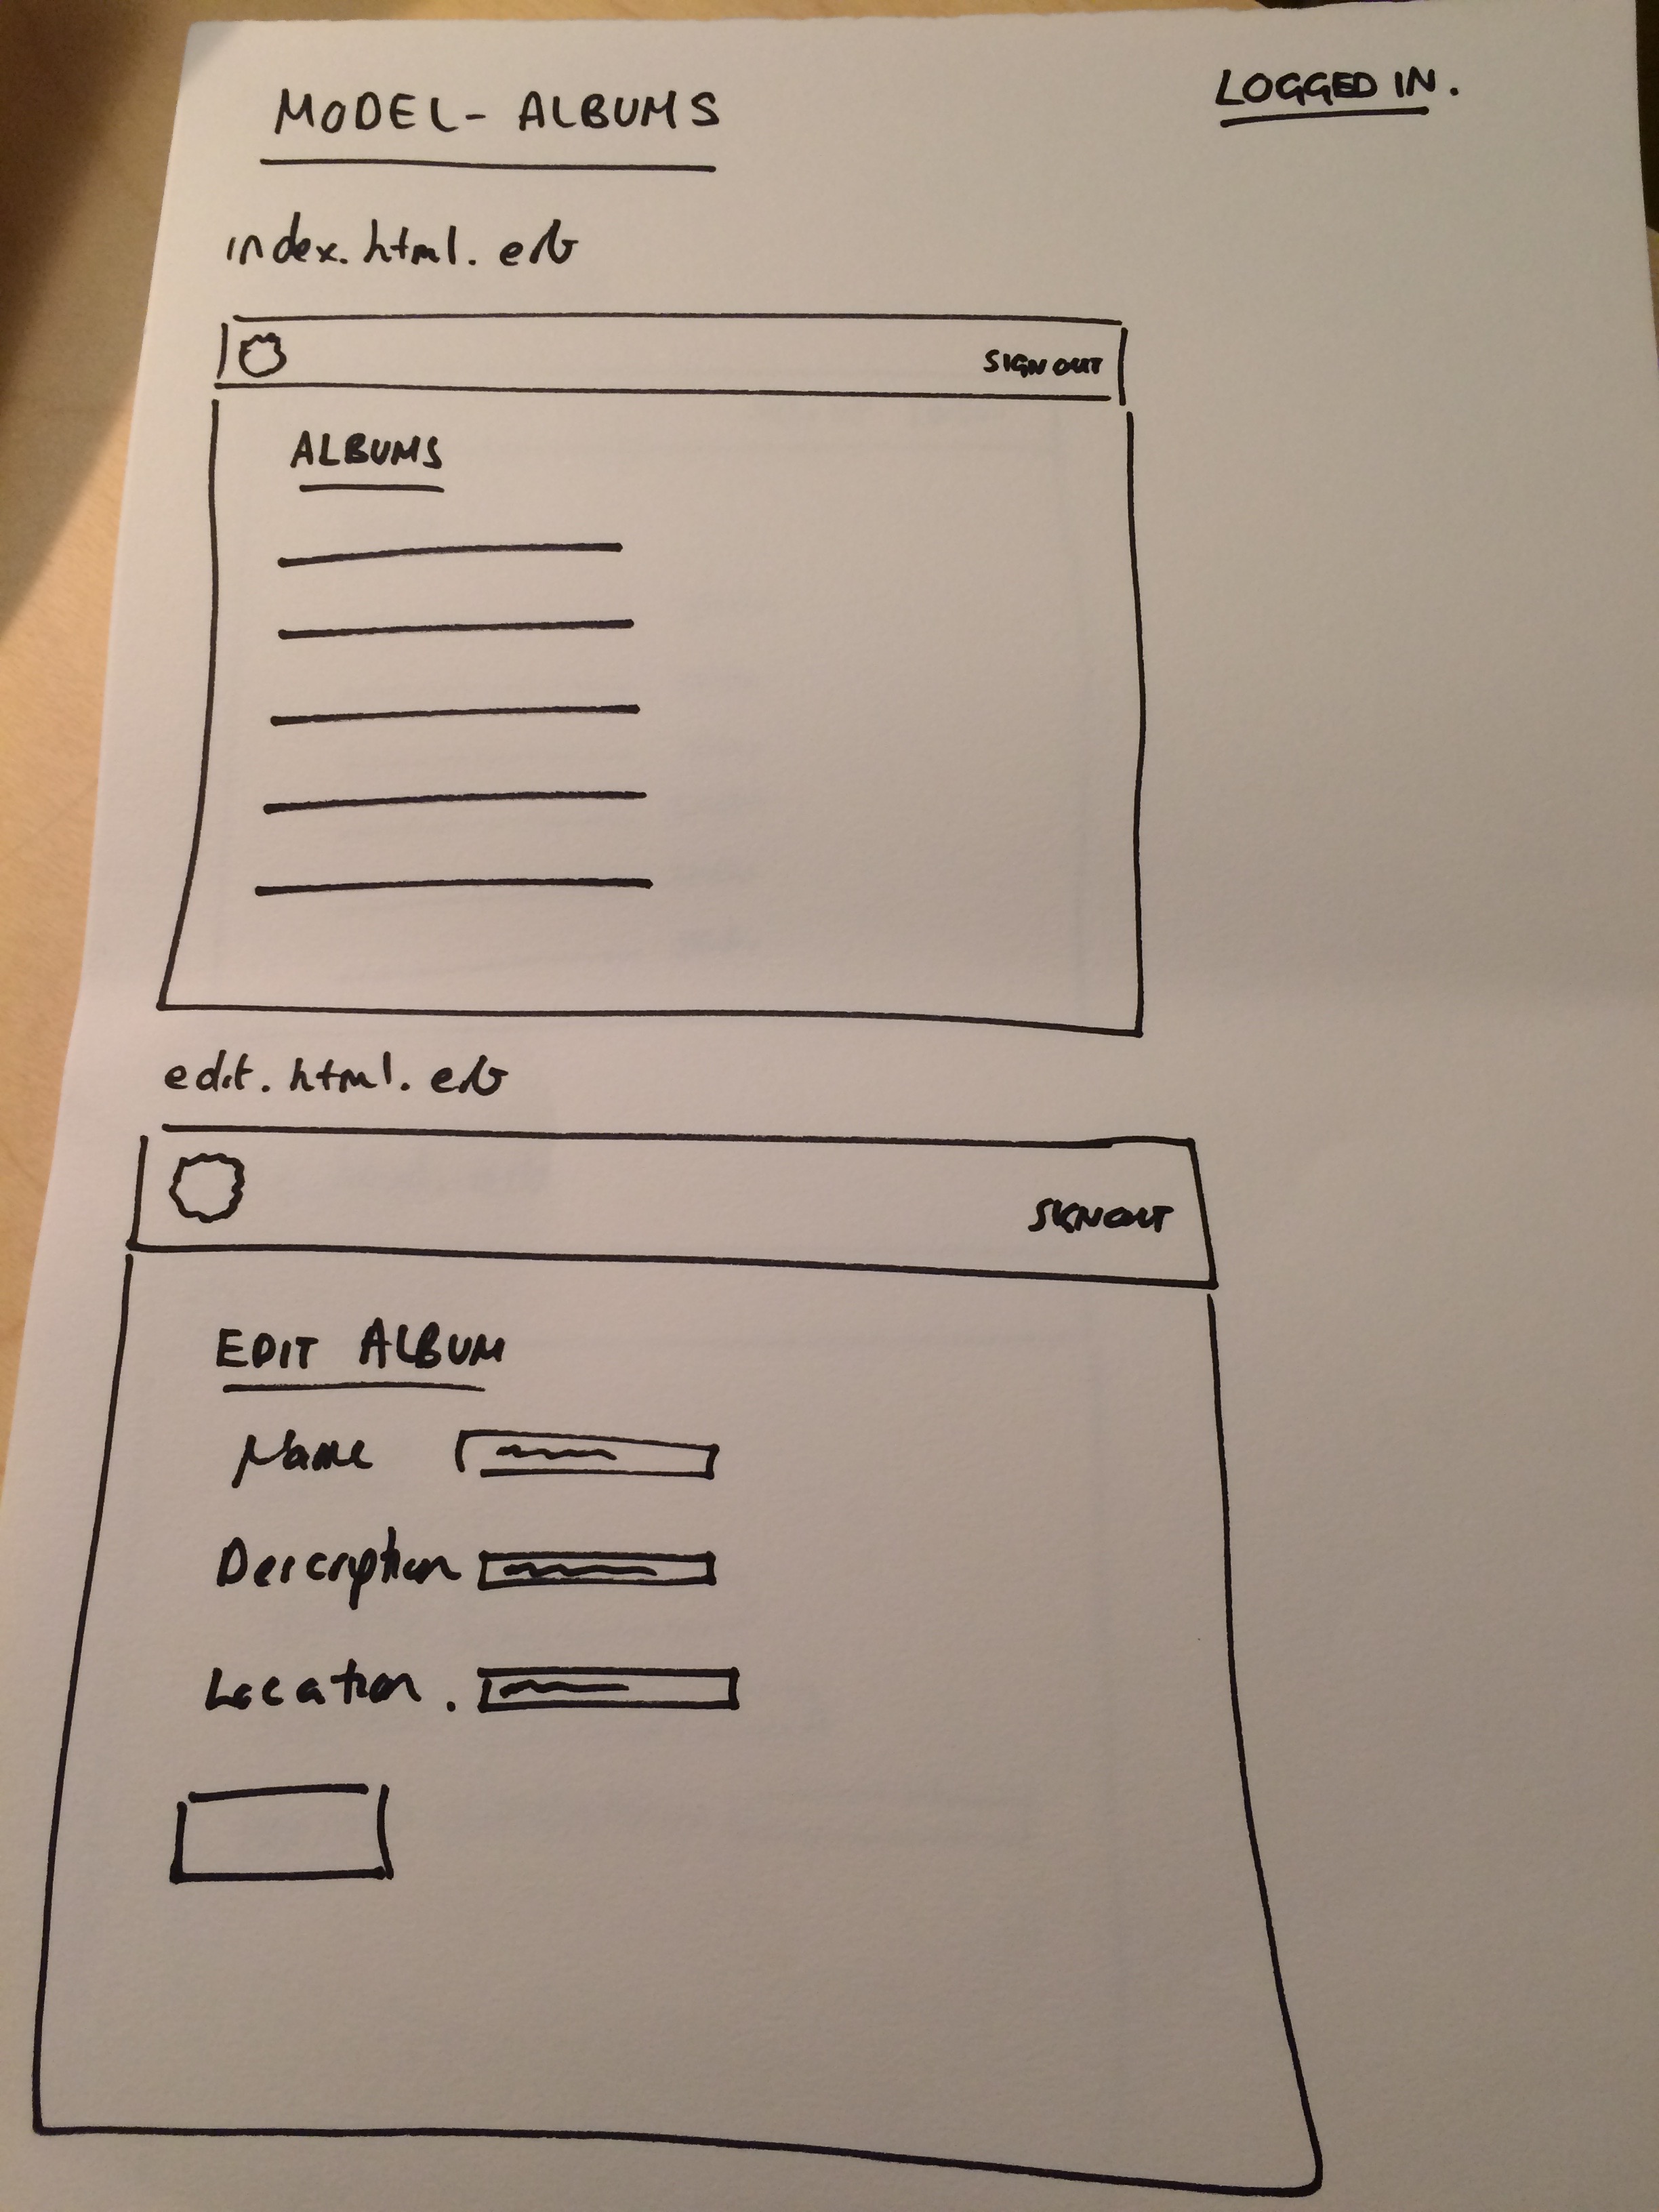 MODEL - ALBUMS
LOGGED IN.
index.html.erb
SIGN OUT
ALBUMS
edit.html.erb
SIGN OUT
EDIT ALBUM
Name
Description
Location.